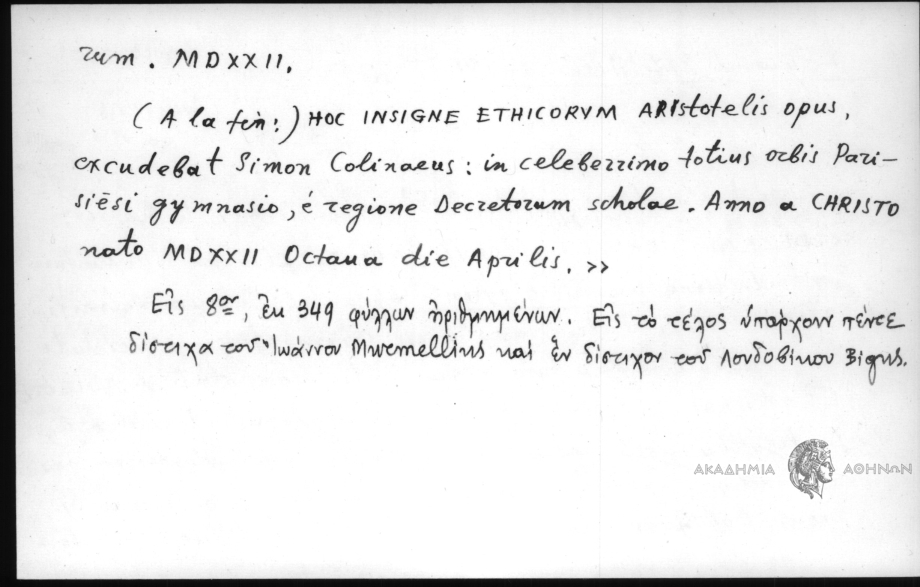 rum. MDXXII.
(A la fin:) HOC INSIGNE ETHICORVM ARIstotelis opus,
excudebat Simon Colinaeus: in celeberrimo totius orbis Pari-
siēsi gymnasio, é regione Decretorum scholae. Anno a CHRISTO
nato MDXXII Octaua die Aprilis. >>
Εἰς 8ον, ἐκ 349 φύλλων ἠριθμημένων. Εἰς τὸ τέλος ὑπάρχουν πέντε
δίστιχα τοῦ Ἰωάννου καὶ ἓν δίστιχον τοῦ Λουδοβίκου
ΑΚΑΔΗΜΙΑ ΑΘΗΝΩΝ